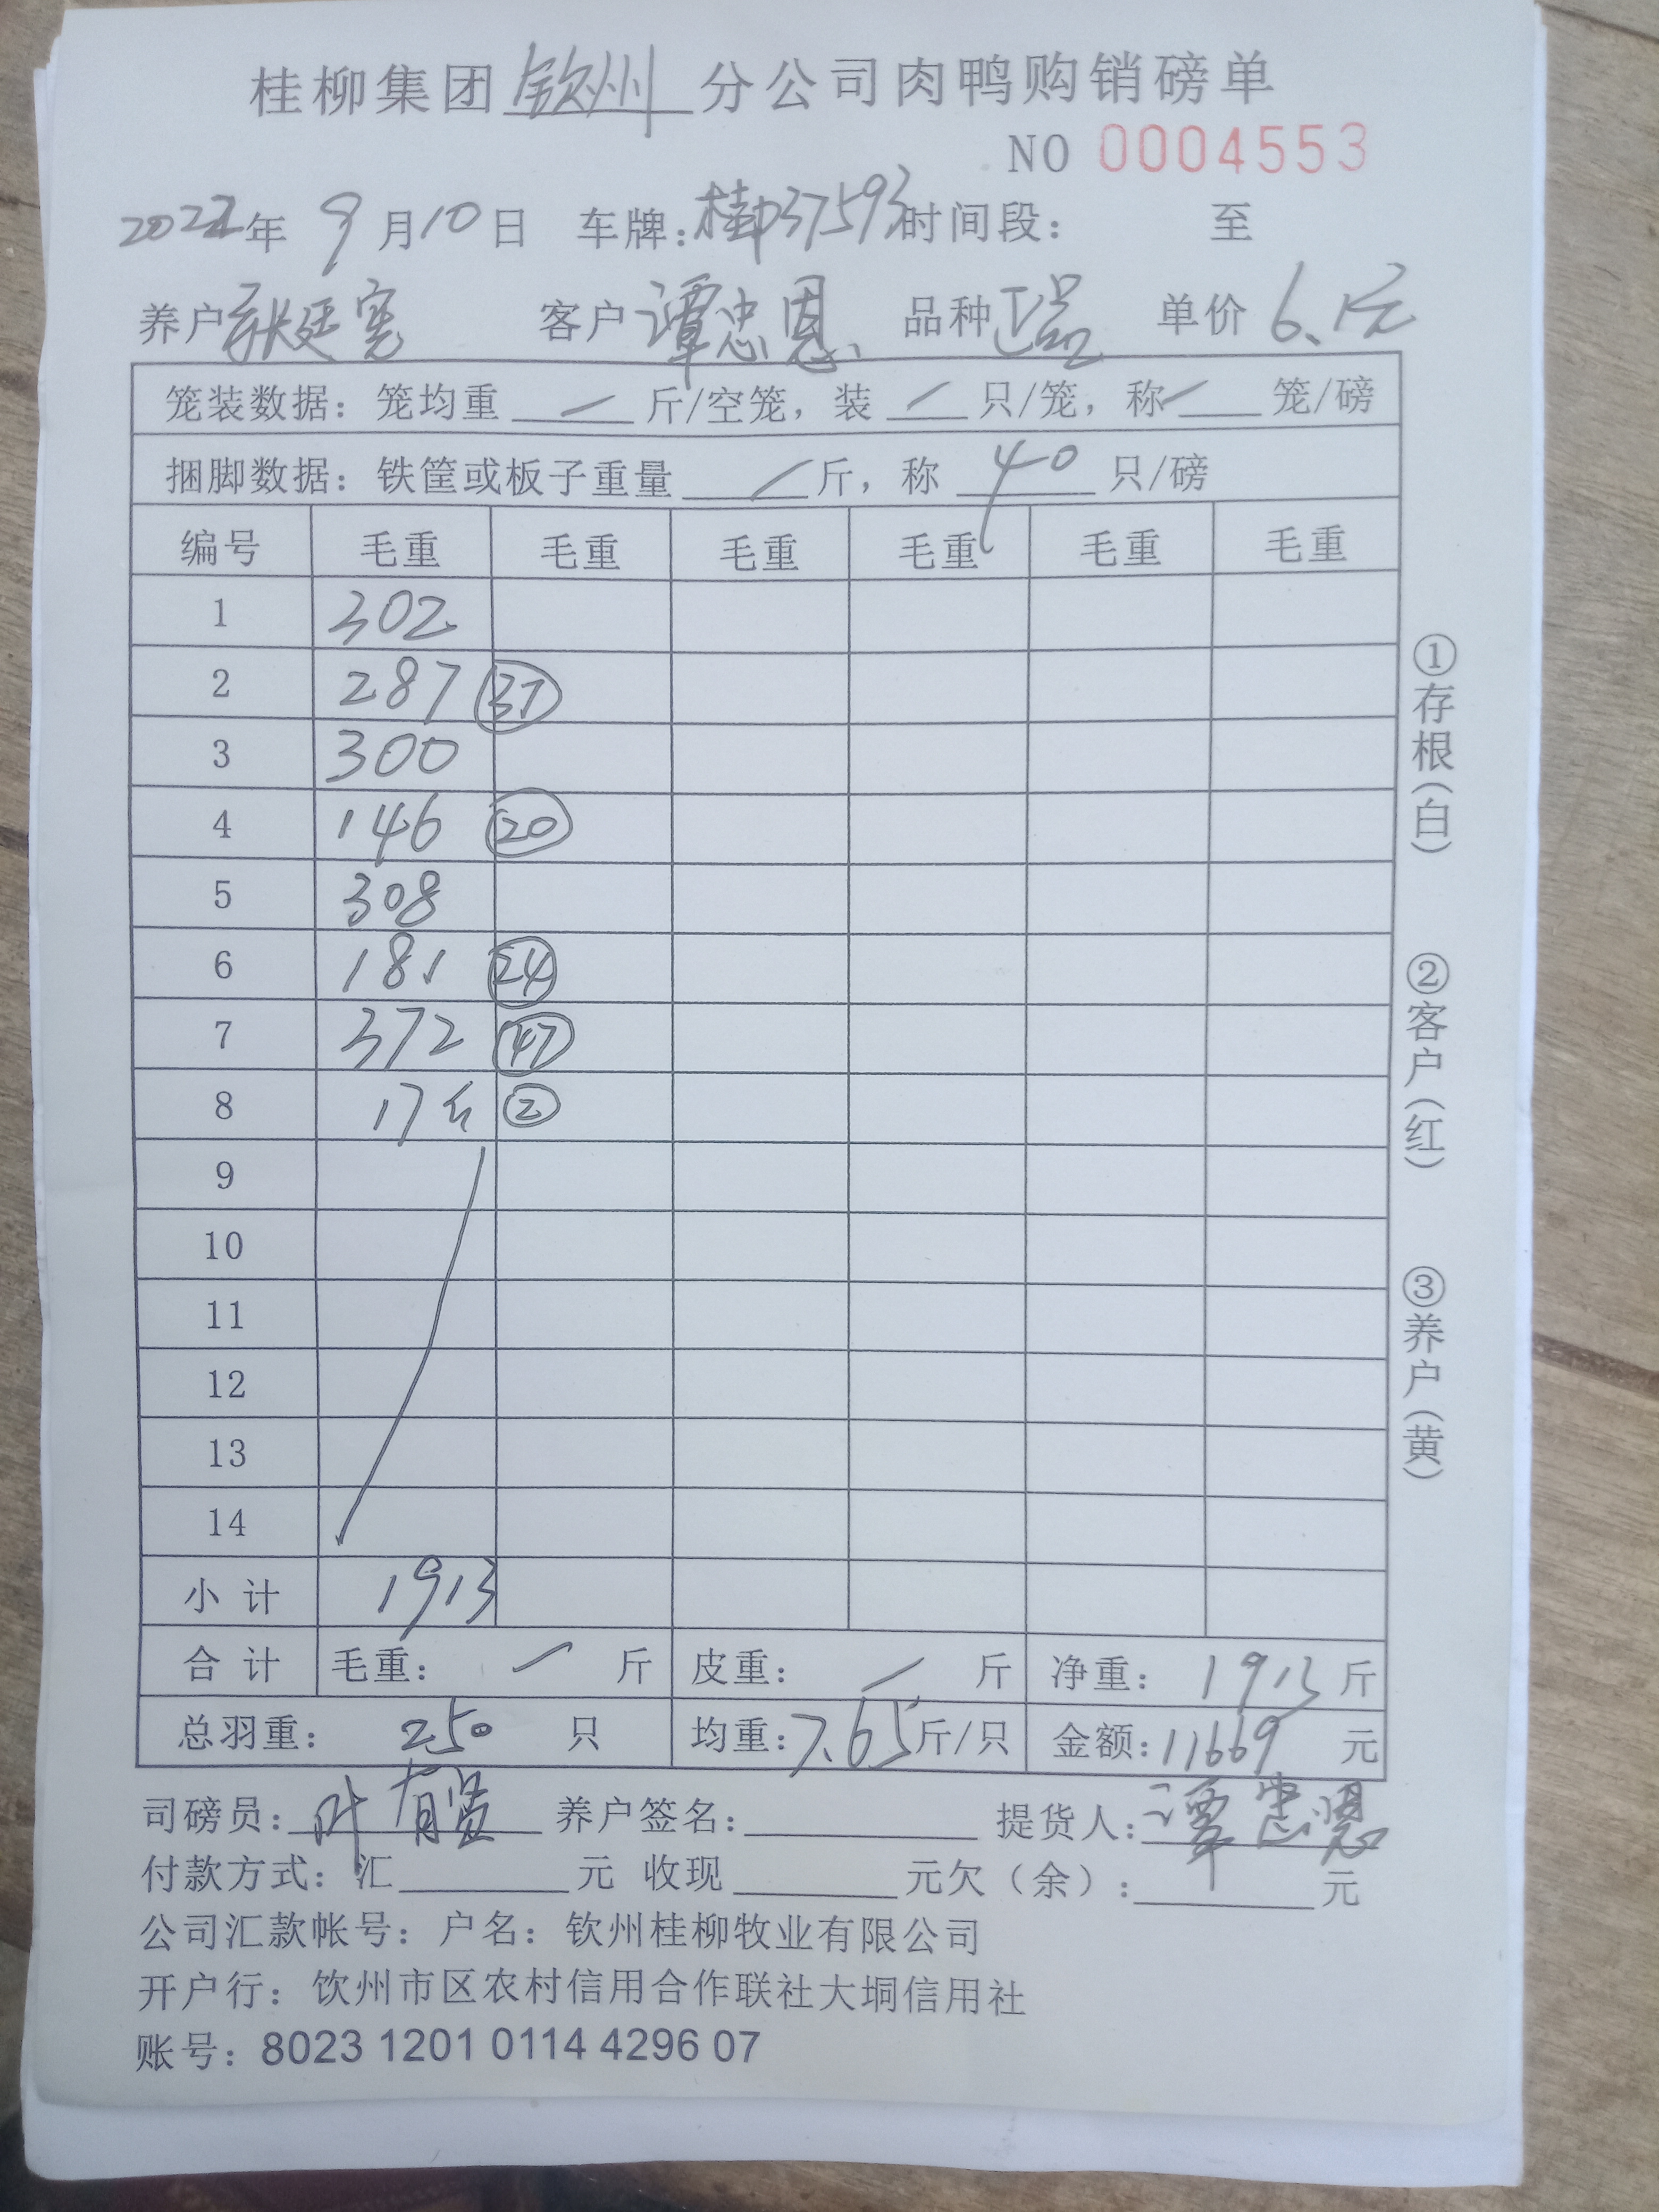 桂柳集团钦州分公司肉鸭购销磅单
NO 0004553
2022年 9月10日 车牌:桂P37593 时间段: 至
养户 客户 谭忠恩 品种 正品 单价 6.1元
笼装数据:笼均重 / 斤/空笼,装 / 只/笼,称 / 笼/磅
捆脚数据:铁筐或板子重量 / 斤,称 40 只/磅
编号 毛重 毛重 毛重 毛重 毛重 毛重
1 302
2 287 37
3 300
4 146 20
5 308
6 181 24
7 372 47
8 17斤 2
9
10
11
12
13
14
小计 1913
合计 毛重: / 斤 皮重: / 斤 净重: 1913 斤
总羽重: 250 只 均重:7.65斤/只 金额:11669 元
司磅员:叶有贤 养户签名: 提货人:谭忠恩
付款方式:汇 元 收现 元欠(余): 元
公司汇款帐号:户名:钦州桂柳牧业有限公司
开户行:钦州市区农村信用合作联社大垌信用社
账号:8023 1201 0114 4296 07
①存根(白)
②客户(红)
③养户(黄)